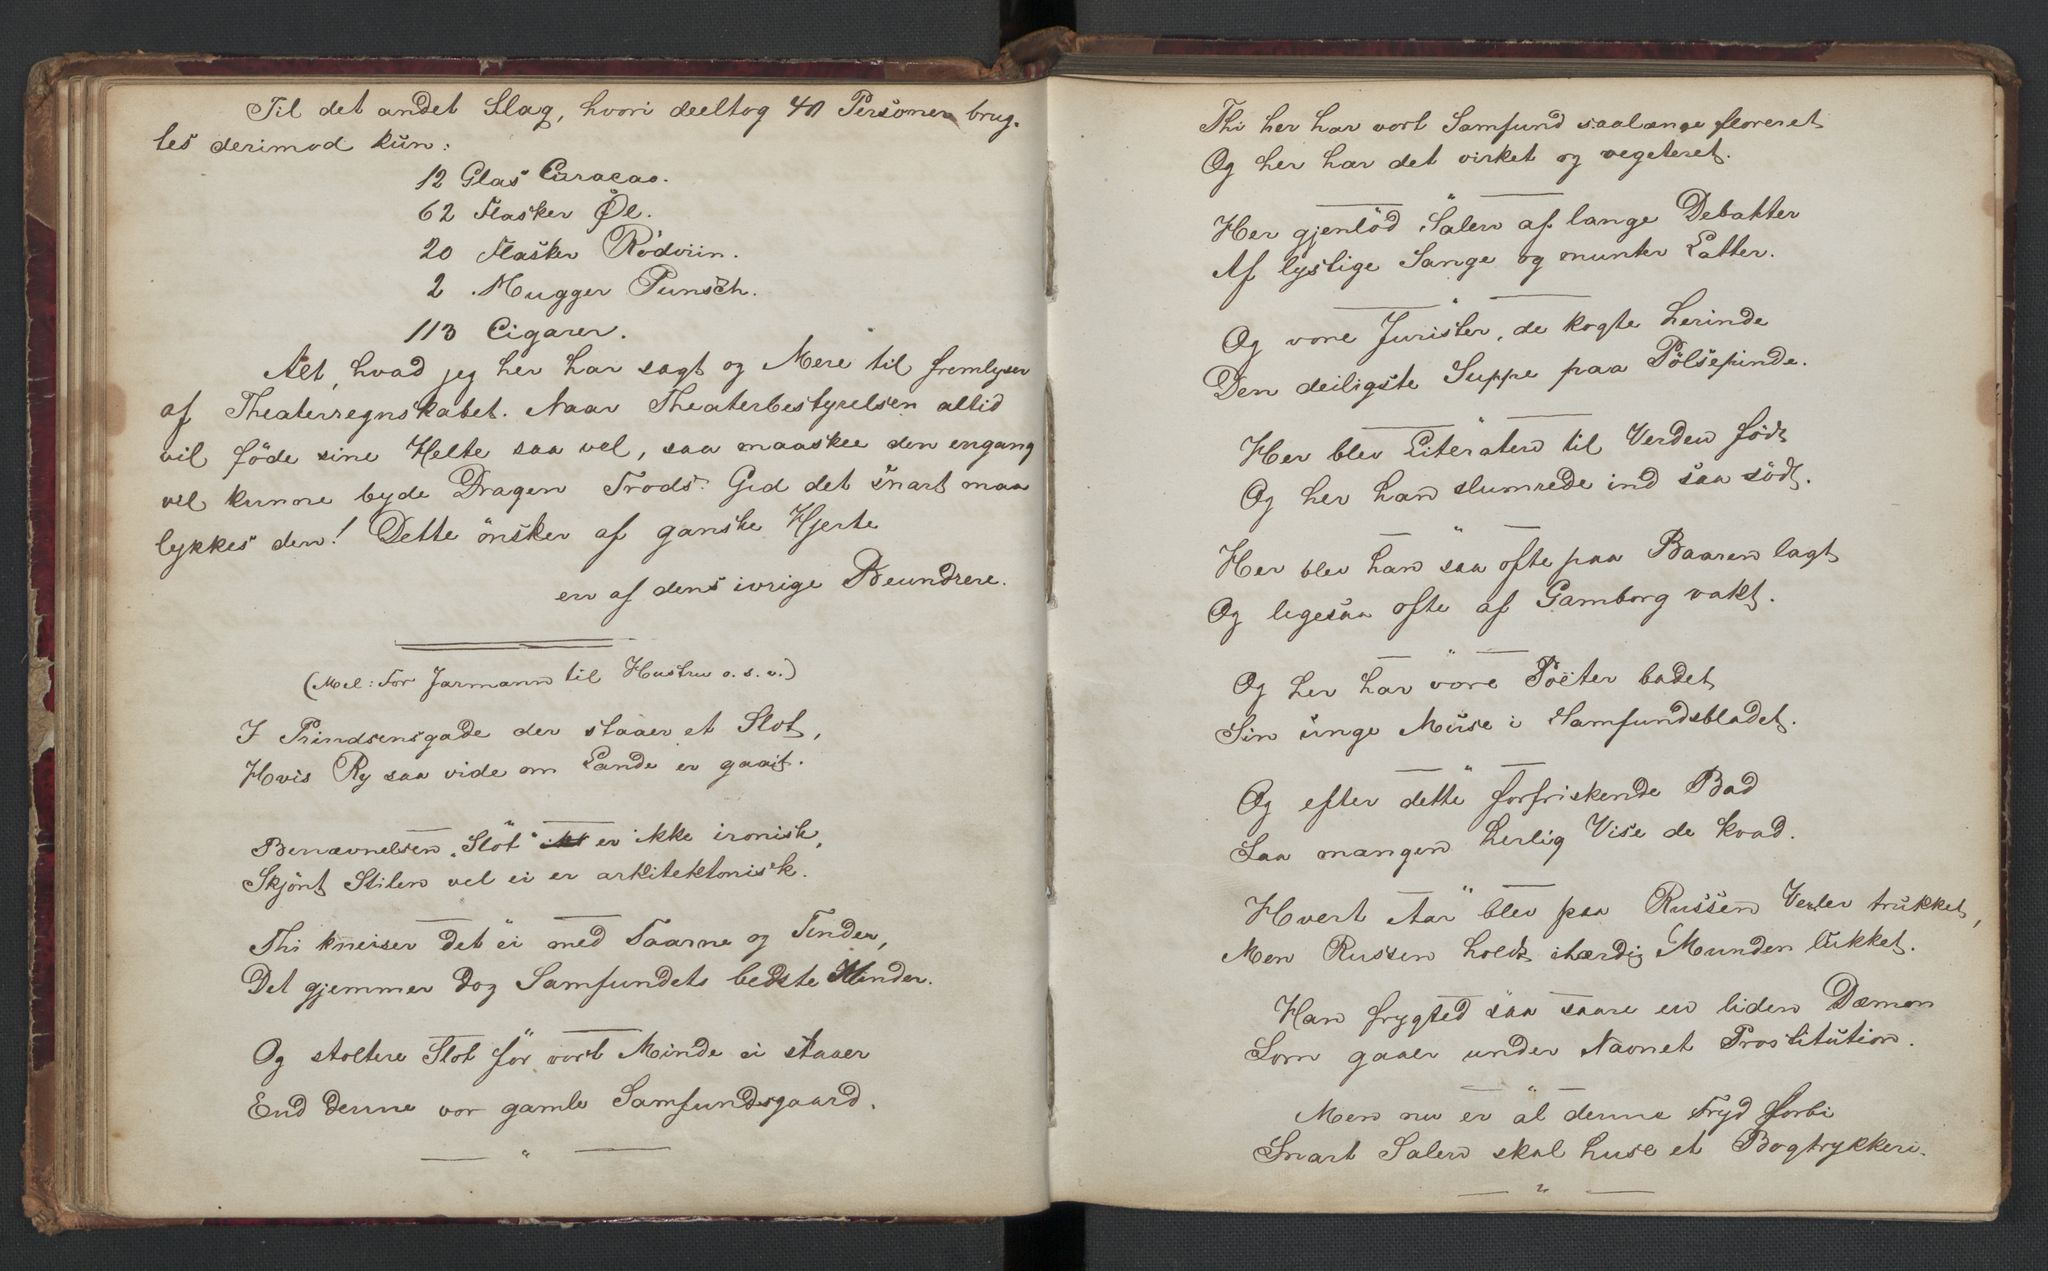 Til det andet Slag, hvori deeltog 40 Personer brug-
tes derimod kun:
12 Glas Curacao.
62 Flasker Øl.
20 Flasker Rødviin.
2 Mugger Punsch.
113 Cigarer.
Alt, hvad jeg her har sagt og Mere til fremlyser
af Theaterregnskabet. Naar Theaterbestyrelsen altid
vil føde sine Helte saa vel, saa maaskee den engang
vil kunne byde Dragen Trods. Gid det snart maa
lykkes den! Dette önsker af ganske Hjerte
en af dens ivrige Beundrere.
(Mel: For Jarmann til Hustru o. s. v.)
I Prindsensgade der staaer et Slot,
Hvis Ry saa vide om Lande er gaait.
Benævnelsen „Slot" er ikke ironisk,
Skjönt Stilen vel ei er arkitektonisk.
Thi kneiser det ei med Taarne og Tinder,
Det gjemmer dog Samfundets bedste Minder.
Og stoltere Slot for vort Minde ei staaer
End denne vor gamle Samfundsgaard.
— " —
Thi her har vort Samfund saalænge floreret
Og her har det virket og vegeteret.
— " —
Her gjenlöd Salen af lange Debatter
Af lystige Sange og munter Latter.
— " —
Og vore Jurister, de kogte herinde
Den deiligste Suppe paa Pölsepinde.
— " —
Her blev Literaten til Verden født
Og her han slumrede ind saa södt.
— " —
Her blev han saa ofte paa Baaren lagt
Og ligesaa ofte af Gamborg vakt.
— " —
Og her har vore Poëter badet
Sin unge Muse i Samfundsbladet.
— " —
Og efter dette forfriskende Bad
Saa mangen herlig Vise de kvad.
— " —
Hvert Aar blev paa Russen Vexler trukket,
Men Russen holdt ihærdig Munden lukket.
— " —
Han frygted saa saare en liden Dæmon
Som gaaer under Navnet Prostitution.
— " —
Men nu er al denne Fryd forbi
Snart Salen skal huse et Bogtrykkeri.
— " —